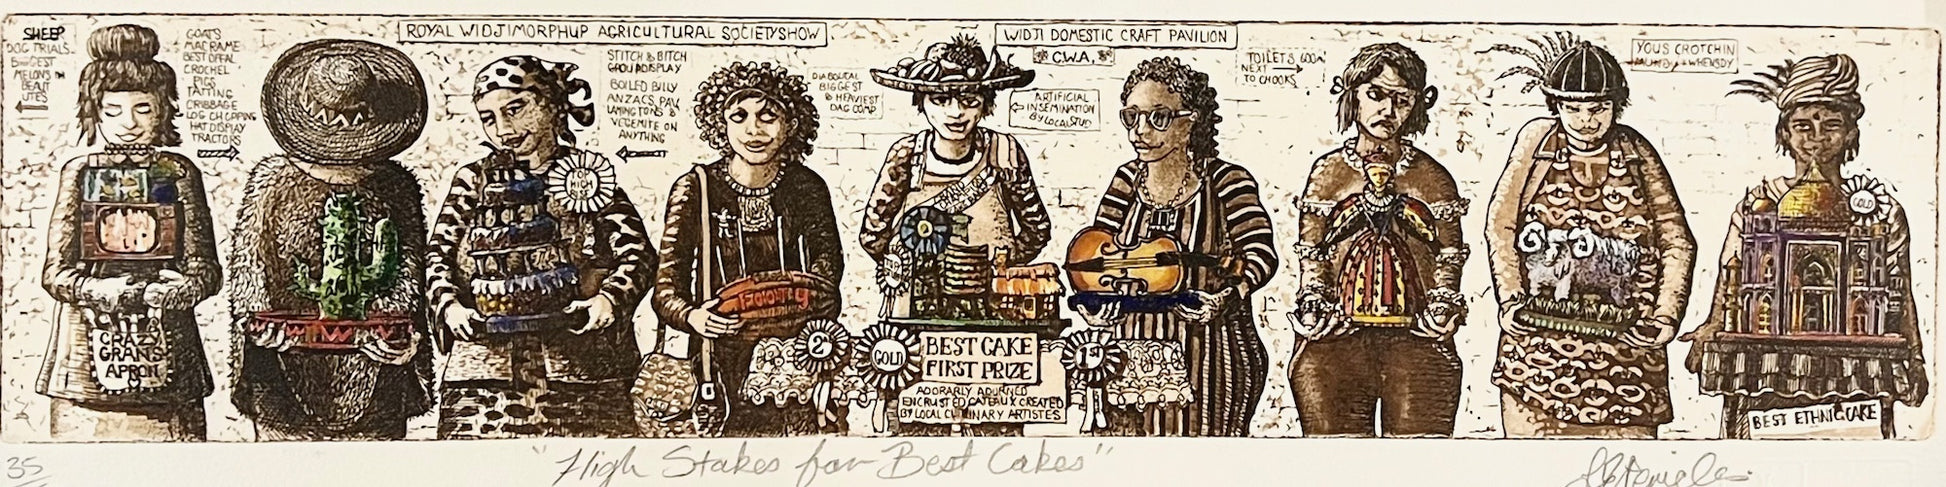 SHEEP
DOG TRIALS
BIGGEST
MELONS IN
PIGS
BEAUT
UTES
GOATS
MACRAME
BEST OFFAL
CROCHEL
PIGS
TATTING
CRIBBAGE
LOG CHOPPING
HAT DISPLAY
TRACTORS
ROYAL WIDJIMORPHUP AGRICULTURAL SOCIETY SHOW
STITCH & BITCH
GROUP DISPLAY
BOILED BILLY
ANZACS, PAV,
LAMINGTONS &
VEGEMITE ON
ANYTHING
DIABOLICAL
BIGGEST
& HEAVIEST
DAG COMP
WIDJI DOMESTIC CRAFT PAVILION
C.W.A.
ARTIFICIAL
INSEMINATION
BY LOCAL STUD
TOILETS 600M
NEXT
TO CHOOKS
YOUS CROTCHIN
CRAZY
GRANS
APRON
TOP
HIGH
RISE
GRAND
Footy
2nd
GOLD
BEST CAKE
FIRST PRIZE
ADORABLY ADORNED
ENCRUSTED GATEAUX CREATED
BY LOCAL CULINARY ARTISTES
1st
GOLD
BEST ETHNIC CAKE
35
"High Stakes for Best Cakes"